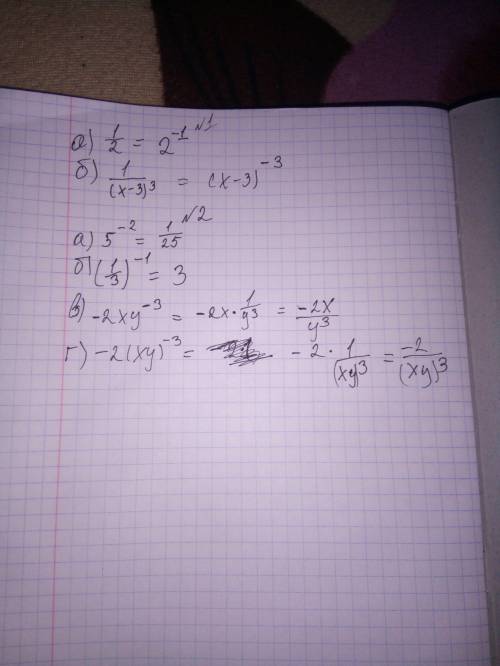 №1
а) 1/2 = 2^-1
б) 1/(x-3)^3 = (x-3)^-3
№2
а) 5^-2 = 1/25
б) (1/3)^-1 = 3
в) -2xy^-3 = -2x · 1/y^3 = -2x/y^3
г) -2(xy)^-3 = -2 · 1/(xy)^3 = -2/(xy)^3